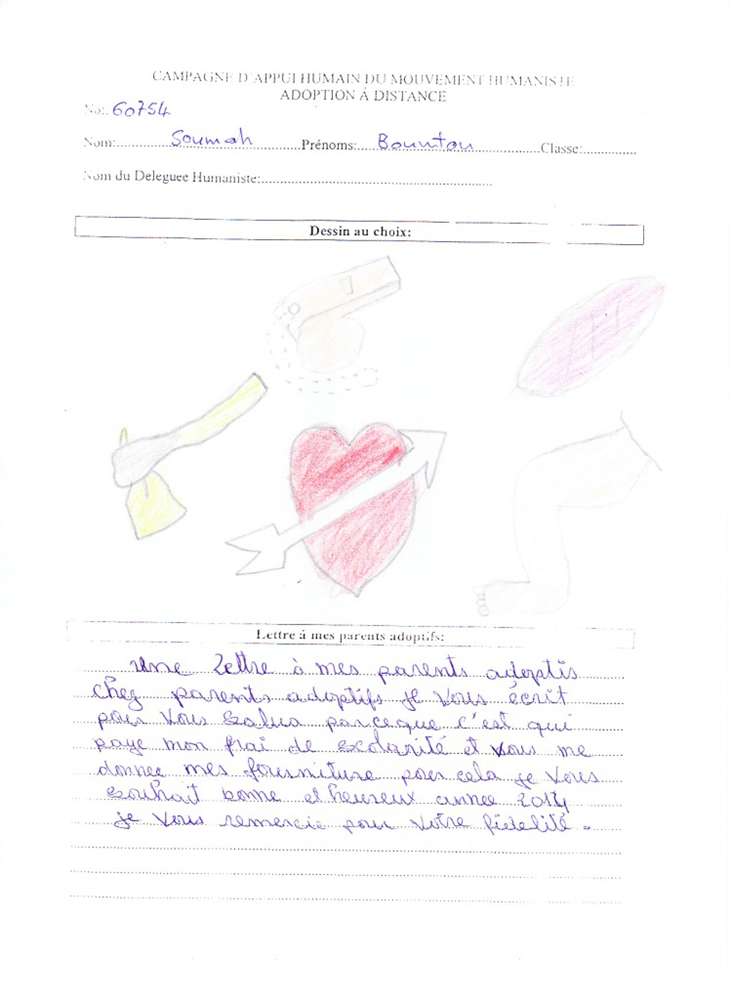 CAMPAGNE D'APPUI HUMAIN DU MOUVEMENT HUMANISTE
ADOPTION À DISTANCE
No: 60754
Nom: Soumah Prénoms: Bountou Classe:
Nom du Deleguee Humaniste:
Dessin au choix:
Lettre à mes parents adoptifs:
Une lettre à mes parents adoptis
Chez parents adoptifs je vous écrit
pour vous salua parceque c'est qui
paye mon frai de scolarité et vous me
donnee mes fourniture pour cela je vous
souhait bonne et heureux annee 2014
je vous remercie pour votre fidelité.